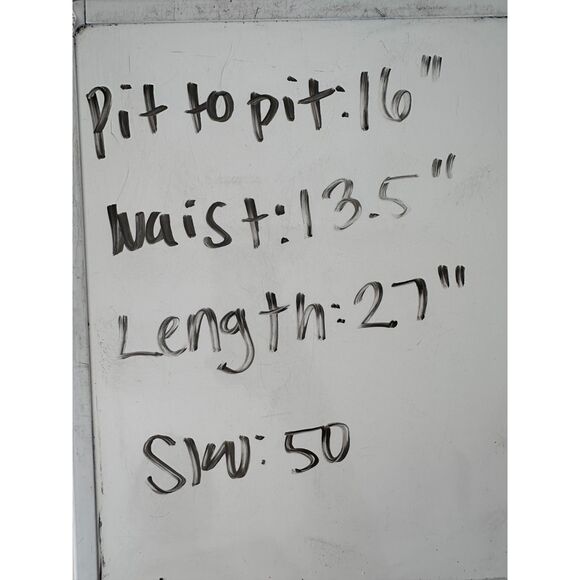 Pit to pit: 16"
Waist: 13.5"
Length: 27"
SW: 50